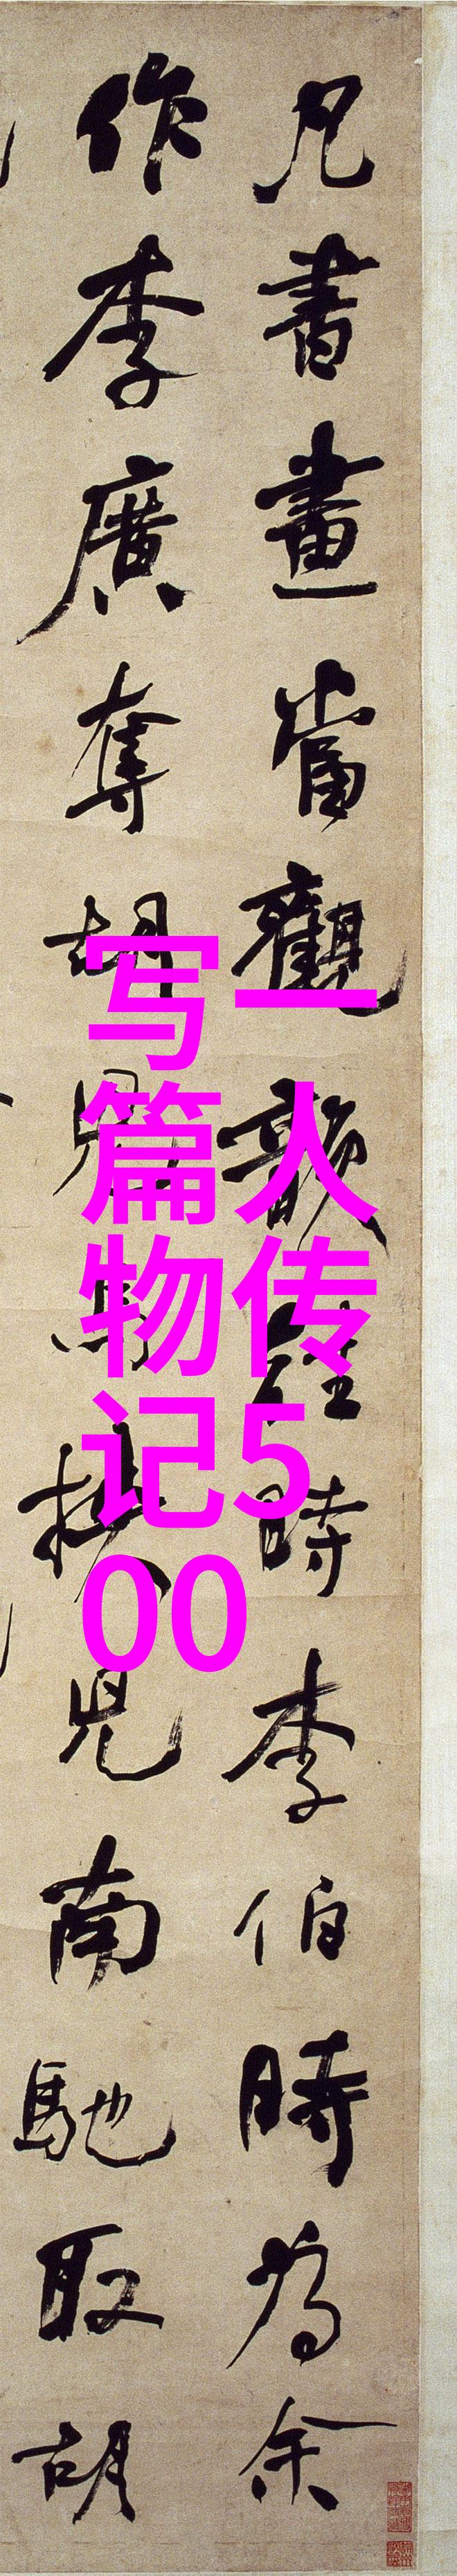 凡書畫當觀韻往時李伯時為余
作李廣奪胡兒馬挾兒南馳取胡
写一
篇人
物传
记5
00